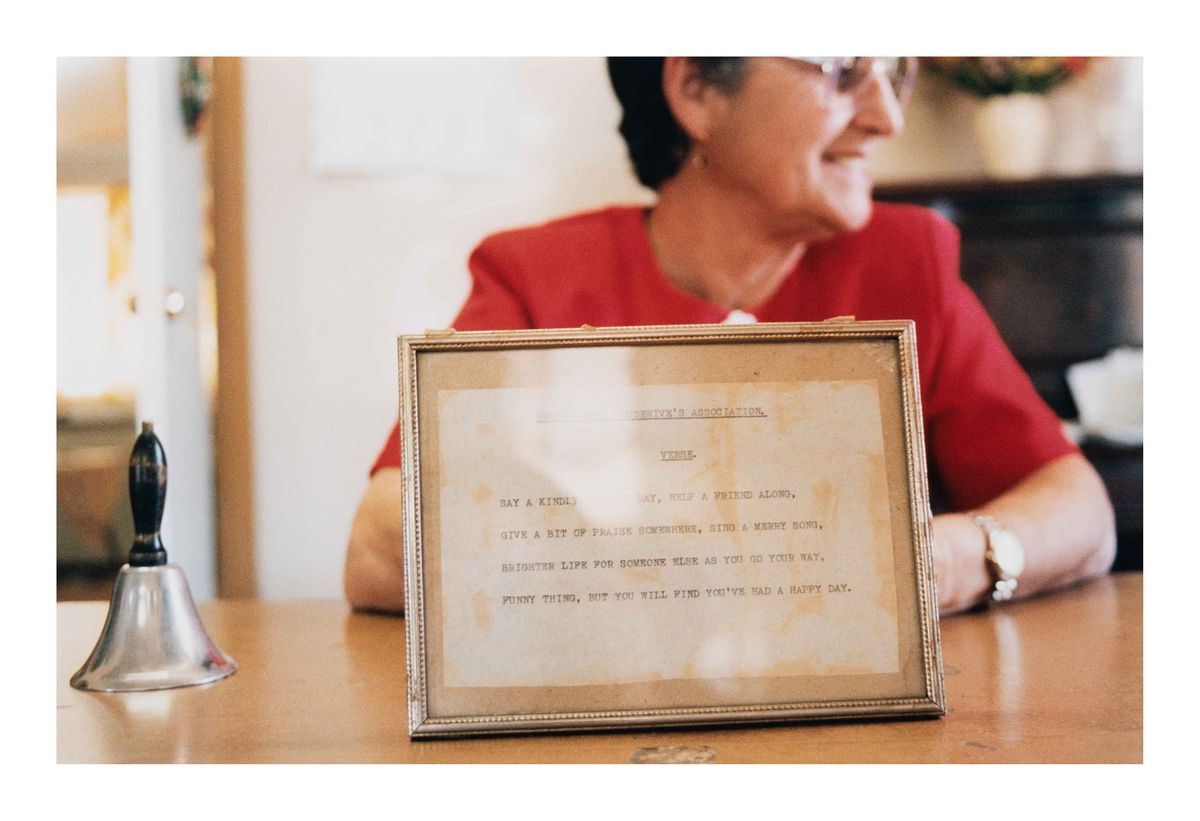 HOUSEWIVE'S ASSOCIATION.
VERSE.
SAY A KINDLY DAY, HELP A FRIEND ALONG,
GIVE A BIT OF PRAISE SOMEWHERE, SING A MERRY SONG,
BRIGHTER LIFE FOR SOMEONE ELSE AS YOU GO YOUR WAY,
FUNNY THING, BUT YOU WILL FIND YOU'VE HAD A HAPPY DAY.